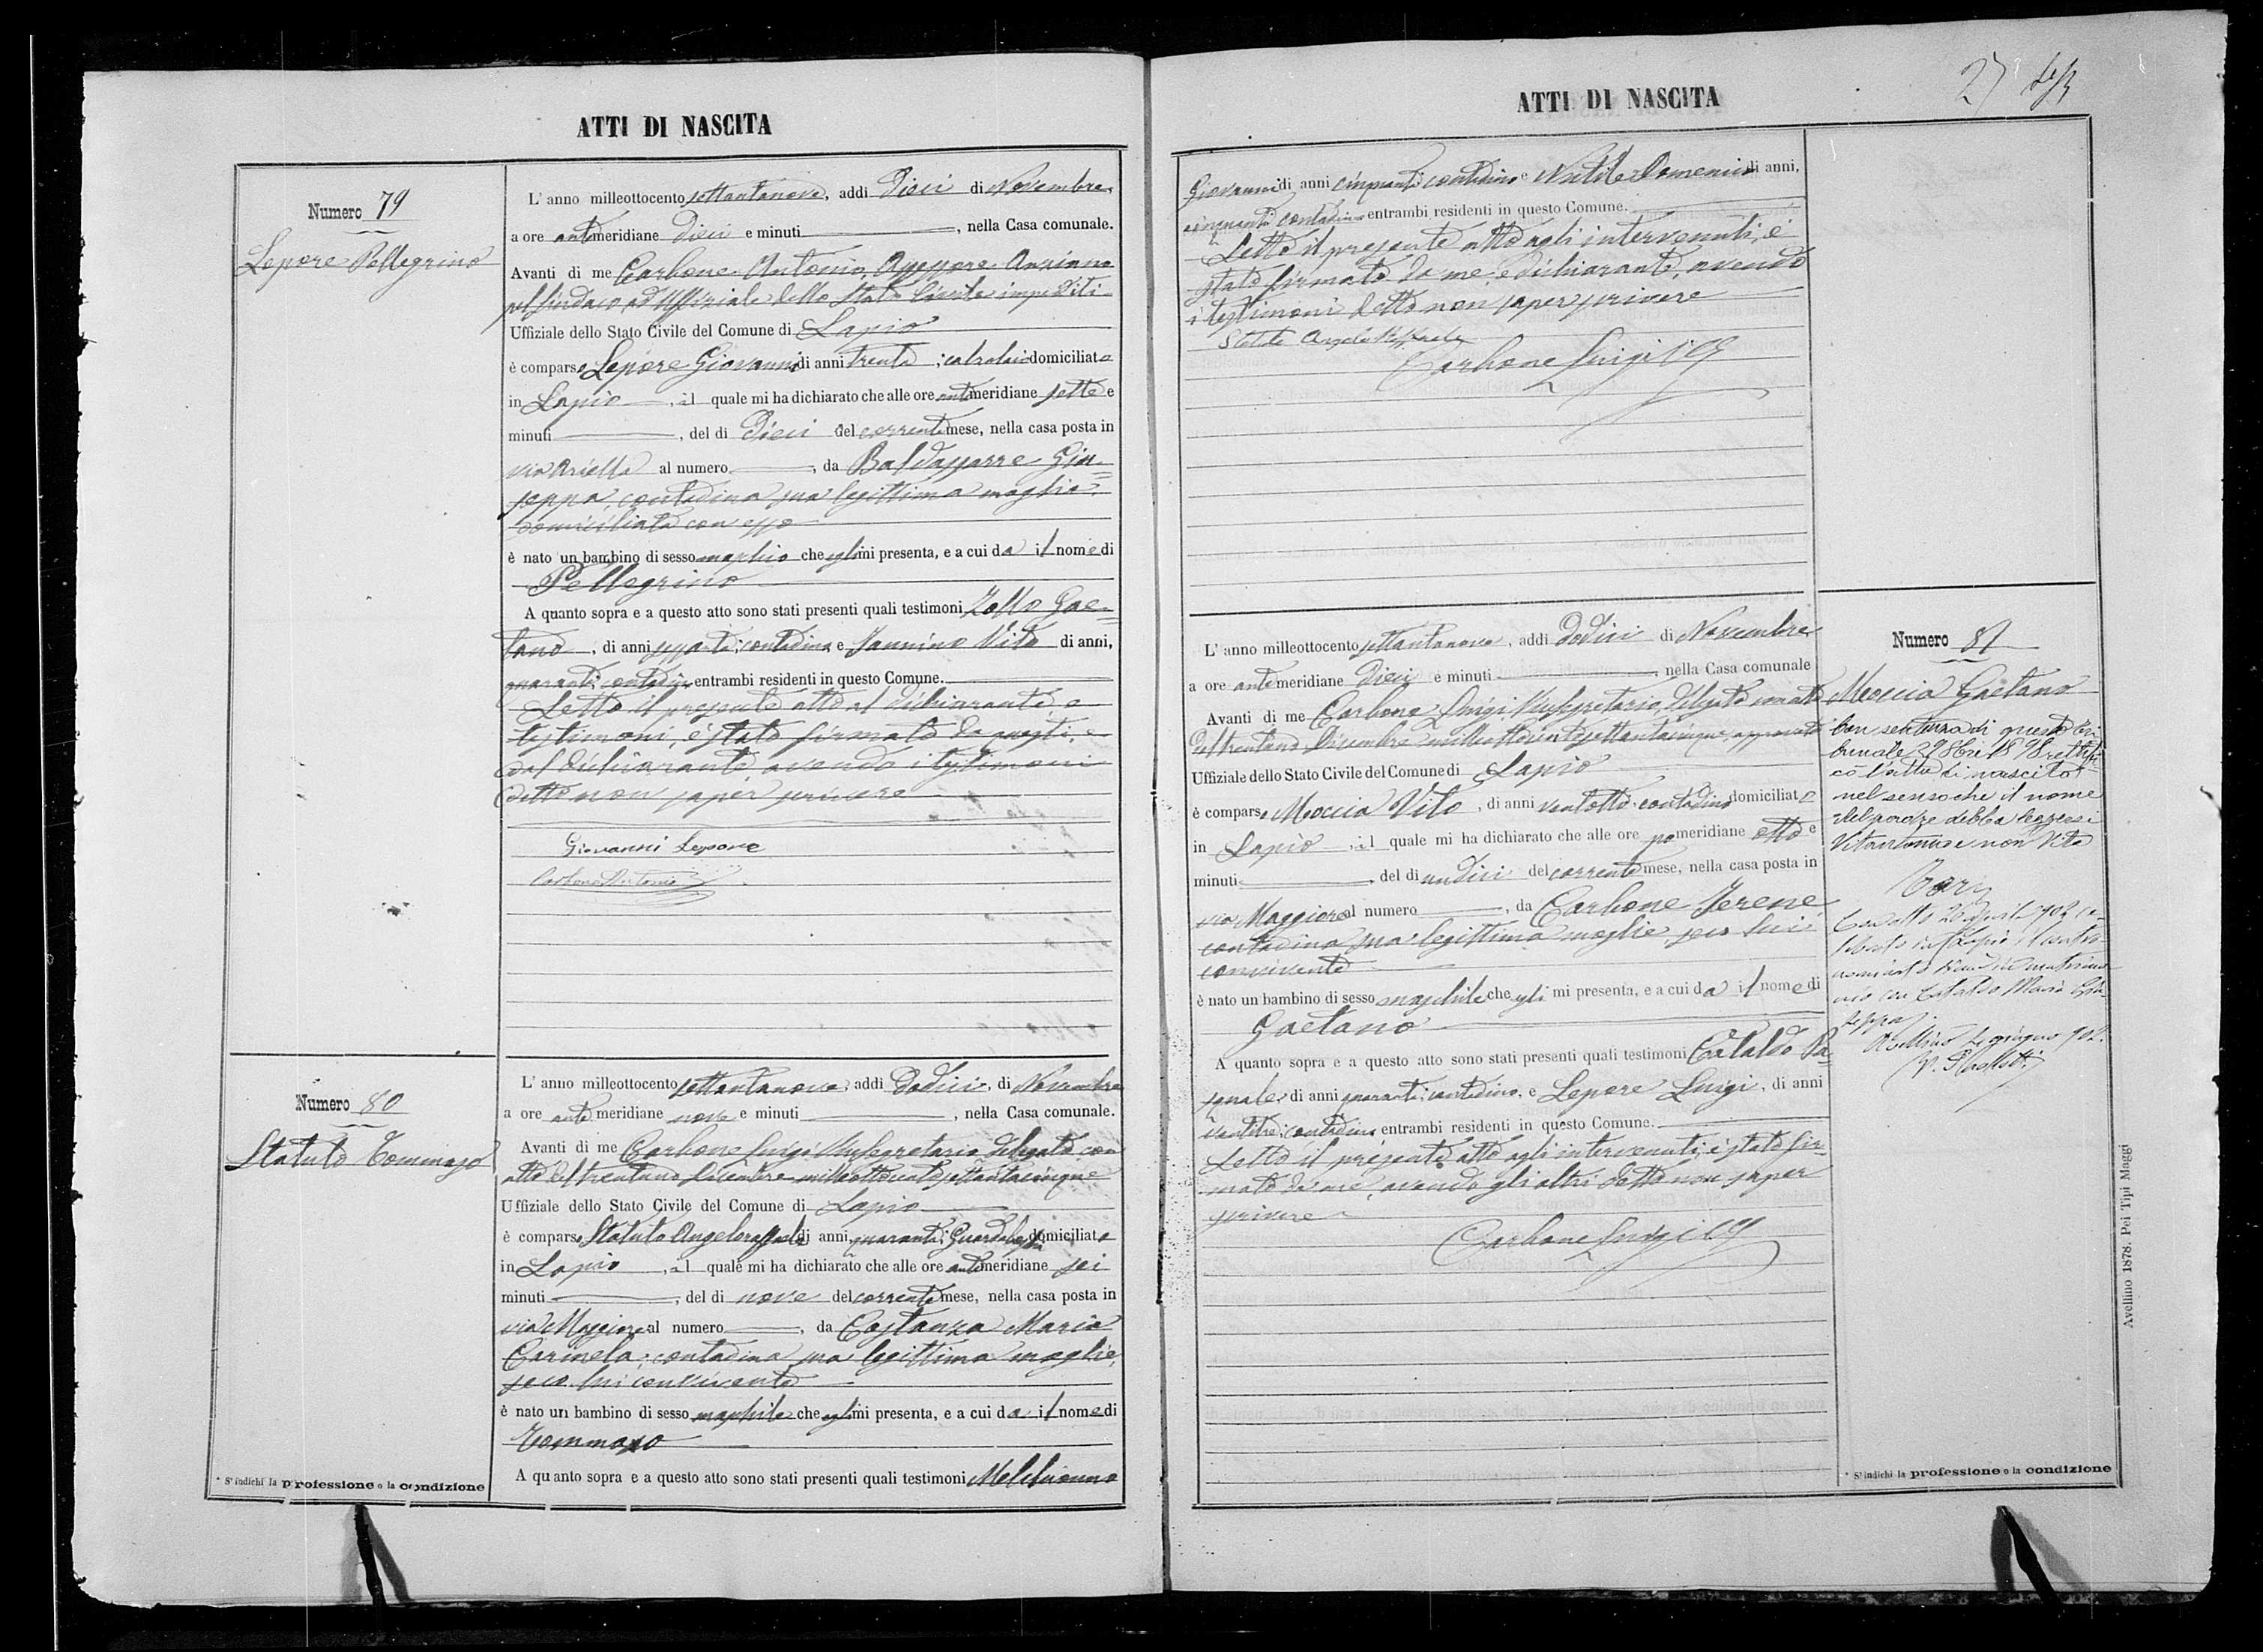 ATTI DI NASCITA
Numero 79
Lepore Pellegrino
L'anno milleottocento settantanove, addì Dieci di Novembre
a ore antimeridiane dieci e minuti, nella Casa comunale.
Avanti di me Carbone Antonio, Assessore Anziano
pel Sindaco, ad Uffiziale dello Stato Civile impediti
Uffiziale dello Stato Civile del Comune di Lapio
è comparso Lepore Giovanni di anni trenta, calzolaio domiciliato
in Lapio, il quale mi ha dichiarato che alle ore antimeridiane sette e
minuti, del dì Dieci del corrente mese, nella casa posta in
via Ariella al numero, da Baldassarre Giu=
seppa, contadina sua legittima moglie,
domiciliata con esso
è nato un bambino di sesso maschio che egli mi presenta, e a cui da il nome di
Pellegrino
A quanto sopra e a questo atto sono stati presenti quali testimoni Zollo Gae=
tano, di anni sessanta, contadino e Iannino Vito di anni,
quaranta, contadino entrambi residenti in questo Comune.
Letto il presente atto al dichiarante, e
testimoni, è stato firmato da questi, e
dal dichiarante, avendo i testimoni
detto non saper scrivere
Giovanni Lepore
Carbone Antonio
Numero 80
Statuto Tommaso
L'anno milleottocento settantanove, addì Dodici, di Novembre
a ore antimeridiane nove e minuti, nella Casa comunale.
Avanti di me Carbone Luigi Vicesegretario delegato con
atto del trentuno Dicembre milleottocentosettantacinque
Uffiziale dello Stato Civile del Comune di Lapio
è comparso Statuto Angeloraffaele di anni, quaranta, Guardaboschi domiciliato
in Lapio, il quale mi ha dichiarato che alle ore antimeridiane sei
minuti, del dì nove del corrente mese, nella casa posta in
via Maggiore al numero, da Costanza Maria
Carmela, contadina sua legittima moglie,
seco lui convivente
è nato un bambino di sesso maschile che egli mi presenta, e a cui da il nome di
Tommaso
A quanto sopra e a questo atto sono stati presenti quali testimoni Melchionno
* S'indichi la professione o la condizione
27
ATTI DI NASCITA
Giovanni di anni cinquanta contadino e Nutile Domenico di anni,
cinquanta contadino entrambi residenti in questo Comune.
Letto il presente atto agli intervenuti, è
stato firmato da me, e dichiarante, avendo
i testimoni detto non saper scrivere
Statuto Angelo Raffaele
Carbone Luigi
Numero 81
Moccia Gaetano
L'anno milleottocento settantanove, addì Dodici di Novembre
a ore antimeridiane Dieci e minuti, nella Casa comunale
Avanti di me Carbone Luigi Vicesegretario, delegato con atto
del trentuno Dicembre milleottocentosettantacinque, approvato
Uffiziale dello Stato Civile del Comune di Lapio
è comparso Moccia Vito, di anni ventotto, contadino domiciliato
in Lapio, il quale mi ha dichiarato che alle ore pomeridiane otto e
minuti, del dì undici del corrente mese, nella casa posta in
via Maggiore al numero, da Carbone Irene,
contadina sua legittima moglie, seco lui
convivente
è nato un bambino di sesso maschile che egli mi presenta, e a cui da il nome di
Gaetano
A quanto sopra e a questo atto sono stati presenti quali testimoni Cataldo Pa=
squale, di anni quaranta, contadino, e Lepore Luigi, di anni
ventitre, contadino entrambi residenti in questo Comune.
Letto il presente atto agli intervenuti, è stato fir=
mato da me, avendo gli altri detto non saper
scrivere
Carbone Luigi
Con sentenza di questo Tri
bunale 29 8bre 1898 rettifi
cò l'atto di nascita
nel senso che il nome
del padre debba leggersi
Vitantonio e non Vito
Con atto 20 aprile 1902 ce-
lebrato in Lapio, il contro-
nominato contrasse matrimo-
nio con Cataldo Maria Giu-
seppa
Avellino giugno 902.
* S'indichi la professione o la condizione
Avellino 1878. Pei Tipi Maggi